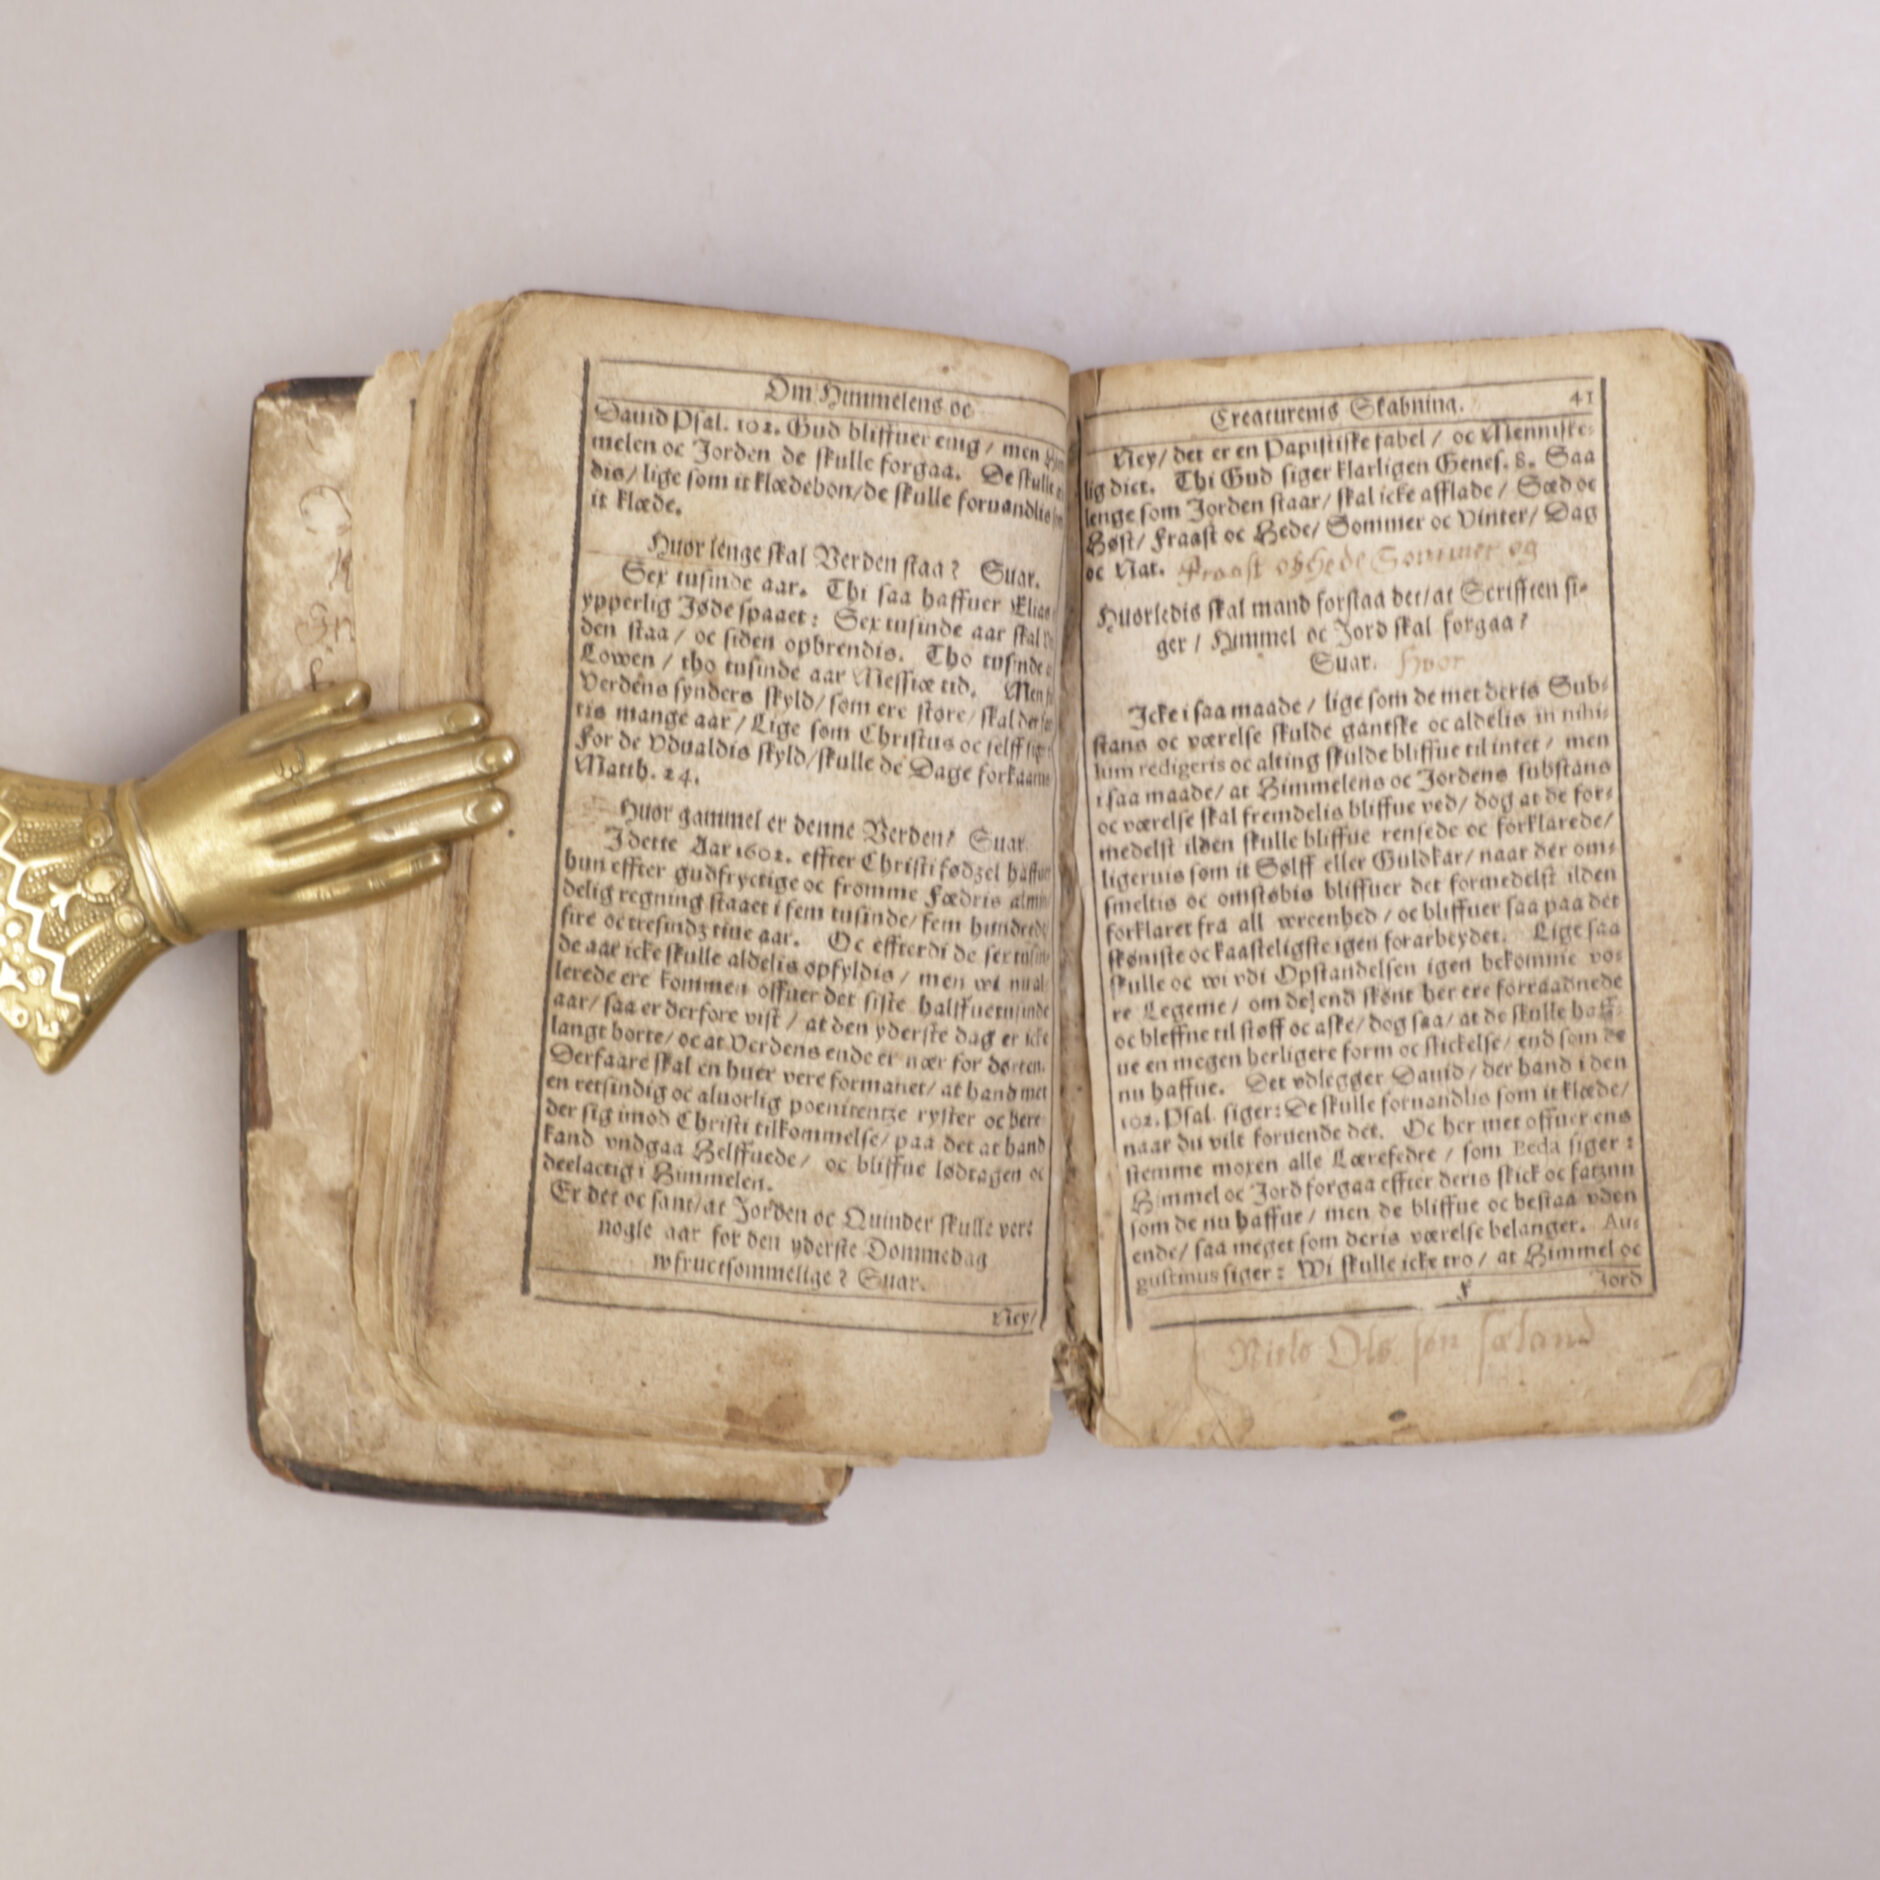 Om Himmelens oc
Dauid Psal. 102. Gud bliffuer euig / men
melen oc Jorden de skulle forgaa. De skulle
dis / lige som it klædebon / de skulle foruandlis
it klæde.
Huor lenge skal Verden staa? Suar.
Sex tusinde aar. Thi saa haffuer Elias
ypperlig Jøde spaaet: Sex tusinde aar skal
den staa / oc siden opbrendis. Tho tusinde
Lowen / tho tusinde aar Messiæ tid. Men
Verdens synders skyld / som ere store / skal der
tis mange aar / Lige som Christus oc selff
For de Vdualdis skyld / skulle de Dage forkaarte
Matth. 24.
Huor gammel er denne Verden? Suar.
J dette Aar 1602. effter Christi fødzel haffuer
hun effter gudfryctige oc fromme Fædris almin
delig regning staaet i fem tusinde / fem hundrede
fire oc tresindz tiue aar. Oc effterdi de sex tusin
de aar icke skulle aldelis opfyldis / men wi nu al
lerede ere kommen offuer det siste halffuetusinde
aar / saa er derfore vist / at den yderste dag er icke
langt borte / oc at Verdens ende er nær for dørren.
Derfaare skal en huer vere formanet / at hand met
en retsindig oc aluorlig poenitentze ryster oc bere
der sig imod Christi tilkommelse / paa det at hand
kand vndgaa Helffuede / oc bliffue lodtagen oc
deelactig i Himmelen.
Er det oc sant / at Jorden oc Quinder skulle vere
nogle aar for den yderste Dommedag
wfructsommelige? Suar.
Ney /
Creaturenis Skabning. 41
Ney / det er en Papistiske fabel / oc Menniske-
lig dict. Thi Gud siger klarligen Genes. 8. Saa
lenge som Jorden staar / skal icke afflade / Sæd oc
Høst / Fraast oc Hede / Sommer oc Vinter / Dag
oc Nat. Fraast oc hede Sommer og
Huorledis skal mand forstaa det / at Scrifften si-
ger / Himmel oc Jord skal forgaa?
Suar. Hvor
Icke i saa maade / lige som de met deris Sub-
stans oc værelse skulde gantske oc aldelis in nihi-
lum redigeris oc alting skulde bliffue til intet / men
i saa maade / at Himmelens oc Jordens substans
oc værelse skal fremdelis bliffue ved / dog at de for-
medelst ilden skulle bliffue rensede oc forklarede /
ligeruis som it Sølff eller Guldkar / naar der om-
smeltis oc omstøbis bliffuer det formedelst ilden
forklaret fra all wreenhed / oc bliffuer saa paa det
skøniste oc kaasteligste igen forarbeydet. Lige saa
skulle oc wi vdi Opstandelsen igen bekomme vo-
re Legeme / om de end skønt her ere forraadnede
oc bleffne til støff oc aske / dog saa / at de skulle haff-
ue en megen herligere form oc skickelse / end som de
nu haffue. Det vdlegger Dauid / der hand i den
102. Psal. siger: De skulle foruandlis som it klæde /
naar du vilt foruende det. Oc her met offuer ens
stemme moxen alle Lærefedre / som Beda siger:
Himmel oc Jord forgaa effter deris skick oc fatznn
som de nu haffue / men de bliffue oc bestaa vden
ende / saa meget som deris værelse belanger. Au-
gustinus siger: Wi skulle icke tro / at Himmel oc
F Jord
Niels Ols søn sæland